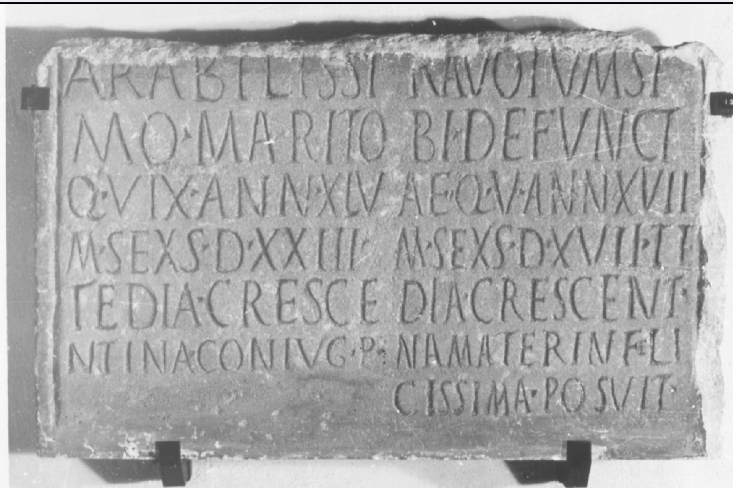 ARABILISSI
MO·MARITO
Q·VIX·ANN·XLV
M·SEXS·D·XXIII
TEDIA·CRESCE
NTINACONIVG·P·
RAVOTVMSI
BI·DEFVNCT
AE·Q·V·ANNXVII
M·SEXS·D·XVII·TE
DIA·CRESCENT·
NAMATERINFELI
CISSIMA·POSVIT·